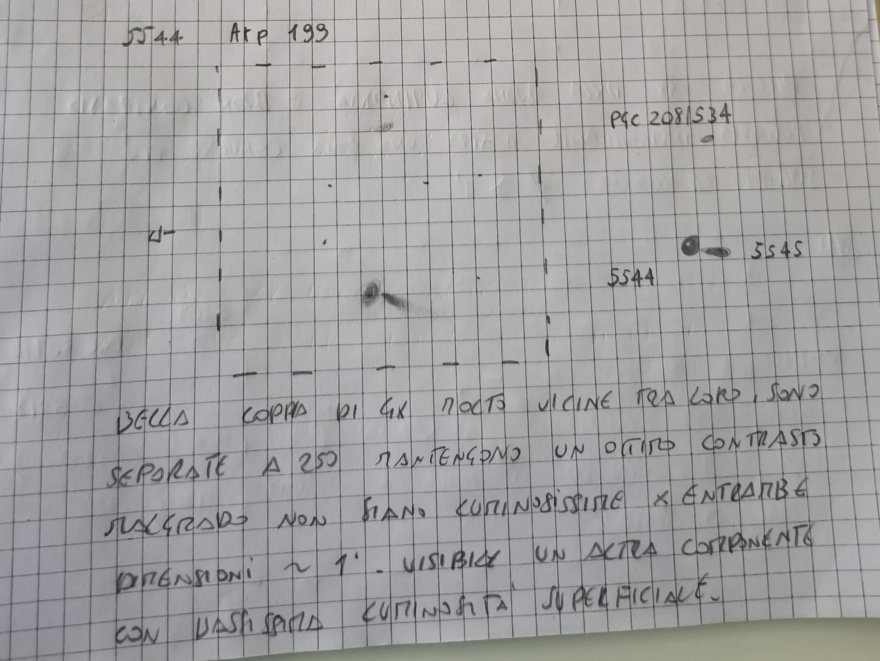 5544 Arp 199
PGC 2081534
5545
5544
BELLA COPPIA DI GX MOLTO VICINE TRA LORO, SONO
SEPARATE A 250 MANTENGONO UN OTTIMO CONTRASTO
MALGRADO NON SIANO LUMINOSISSIME X ENTRAMBE
DIMENSIONI ~ 1'. VISIBILE UN ALTRA COMPONENTE
CON BASSISSIMA LUMINOSITÀ SUPERFICIALE.